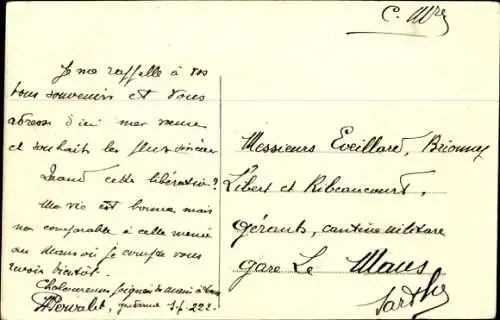 C. Mre
Je me rappelle à vos
bons souvenirs et vous
adresse d'ici mes vœux
et souhaits les plus sincères
Quand cette libération?
Ma vie est bonne mais
non comparable à celle menée
au Mans où je compte vous
revoir bientôt.
Chaleureuses poignées de mains à tous
Messieurs Eveillard, Brionnez
Libert et Ribeaucourt,
gérants, cantine militaire
gare Le Mans
Sarthe